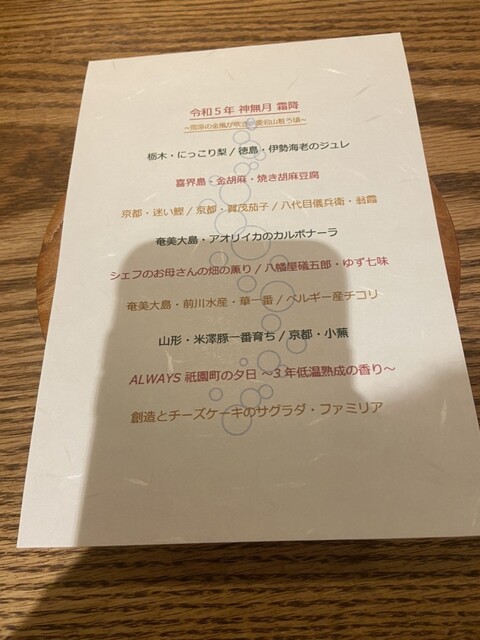 令和5年 神無月 霜降
栃木・にっこり梨 / 徳島・伊勢海老のジュレ
喜界島・金胡麻・焼き胡麻豆腐
京都・迷い鰹 / 京都・賀茂茄子 / 八代目儀兵衛・翁霞
奄美大島・アオリイカのカルボナーラ
シェフのお母さんの畑の薫り / 八幡屋礒五郎・ゆず七味
奄美大島・前川水産・華一番 / ベルギー産チコリ
山形・米澤豚一番育ち / 京都・小蕪
ALWAYS 祇園町の夕日 ～3年低温熟成の香り～
創造とチーズケーキのサグラダ・ファミリア